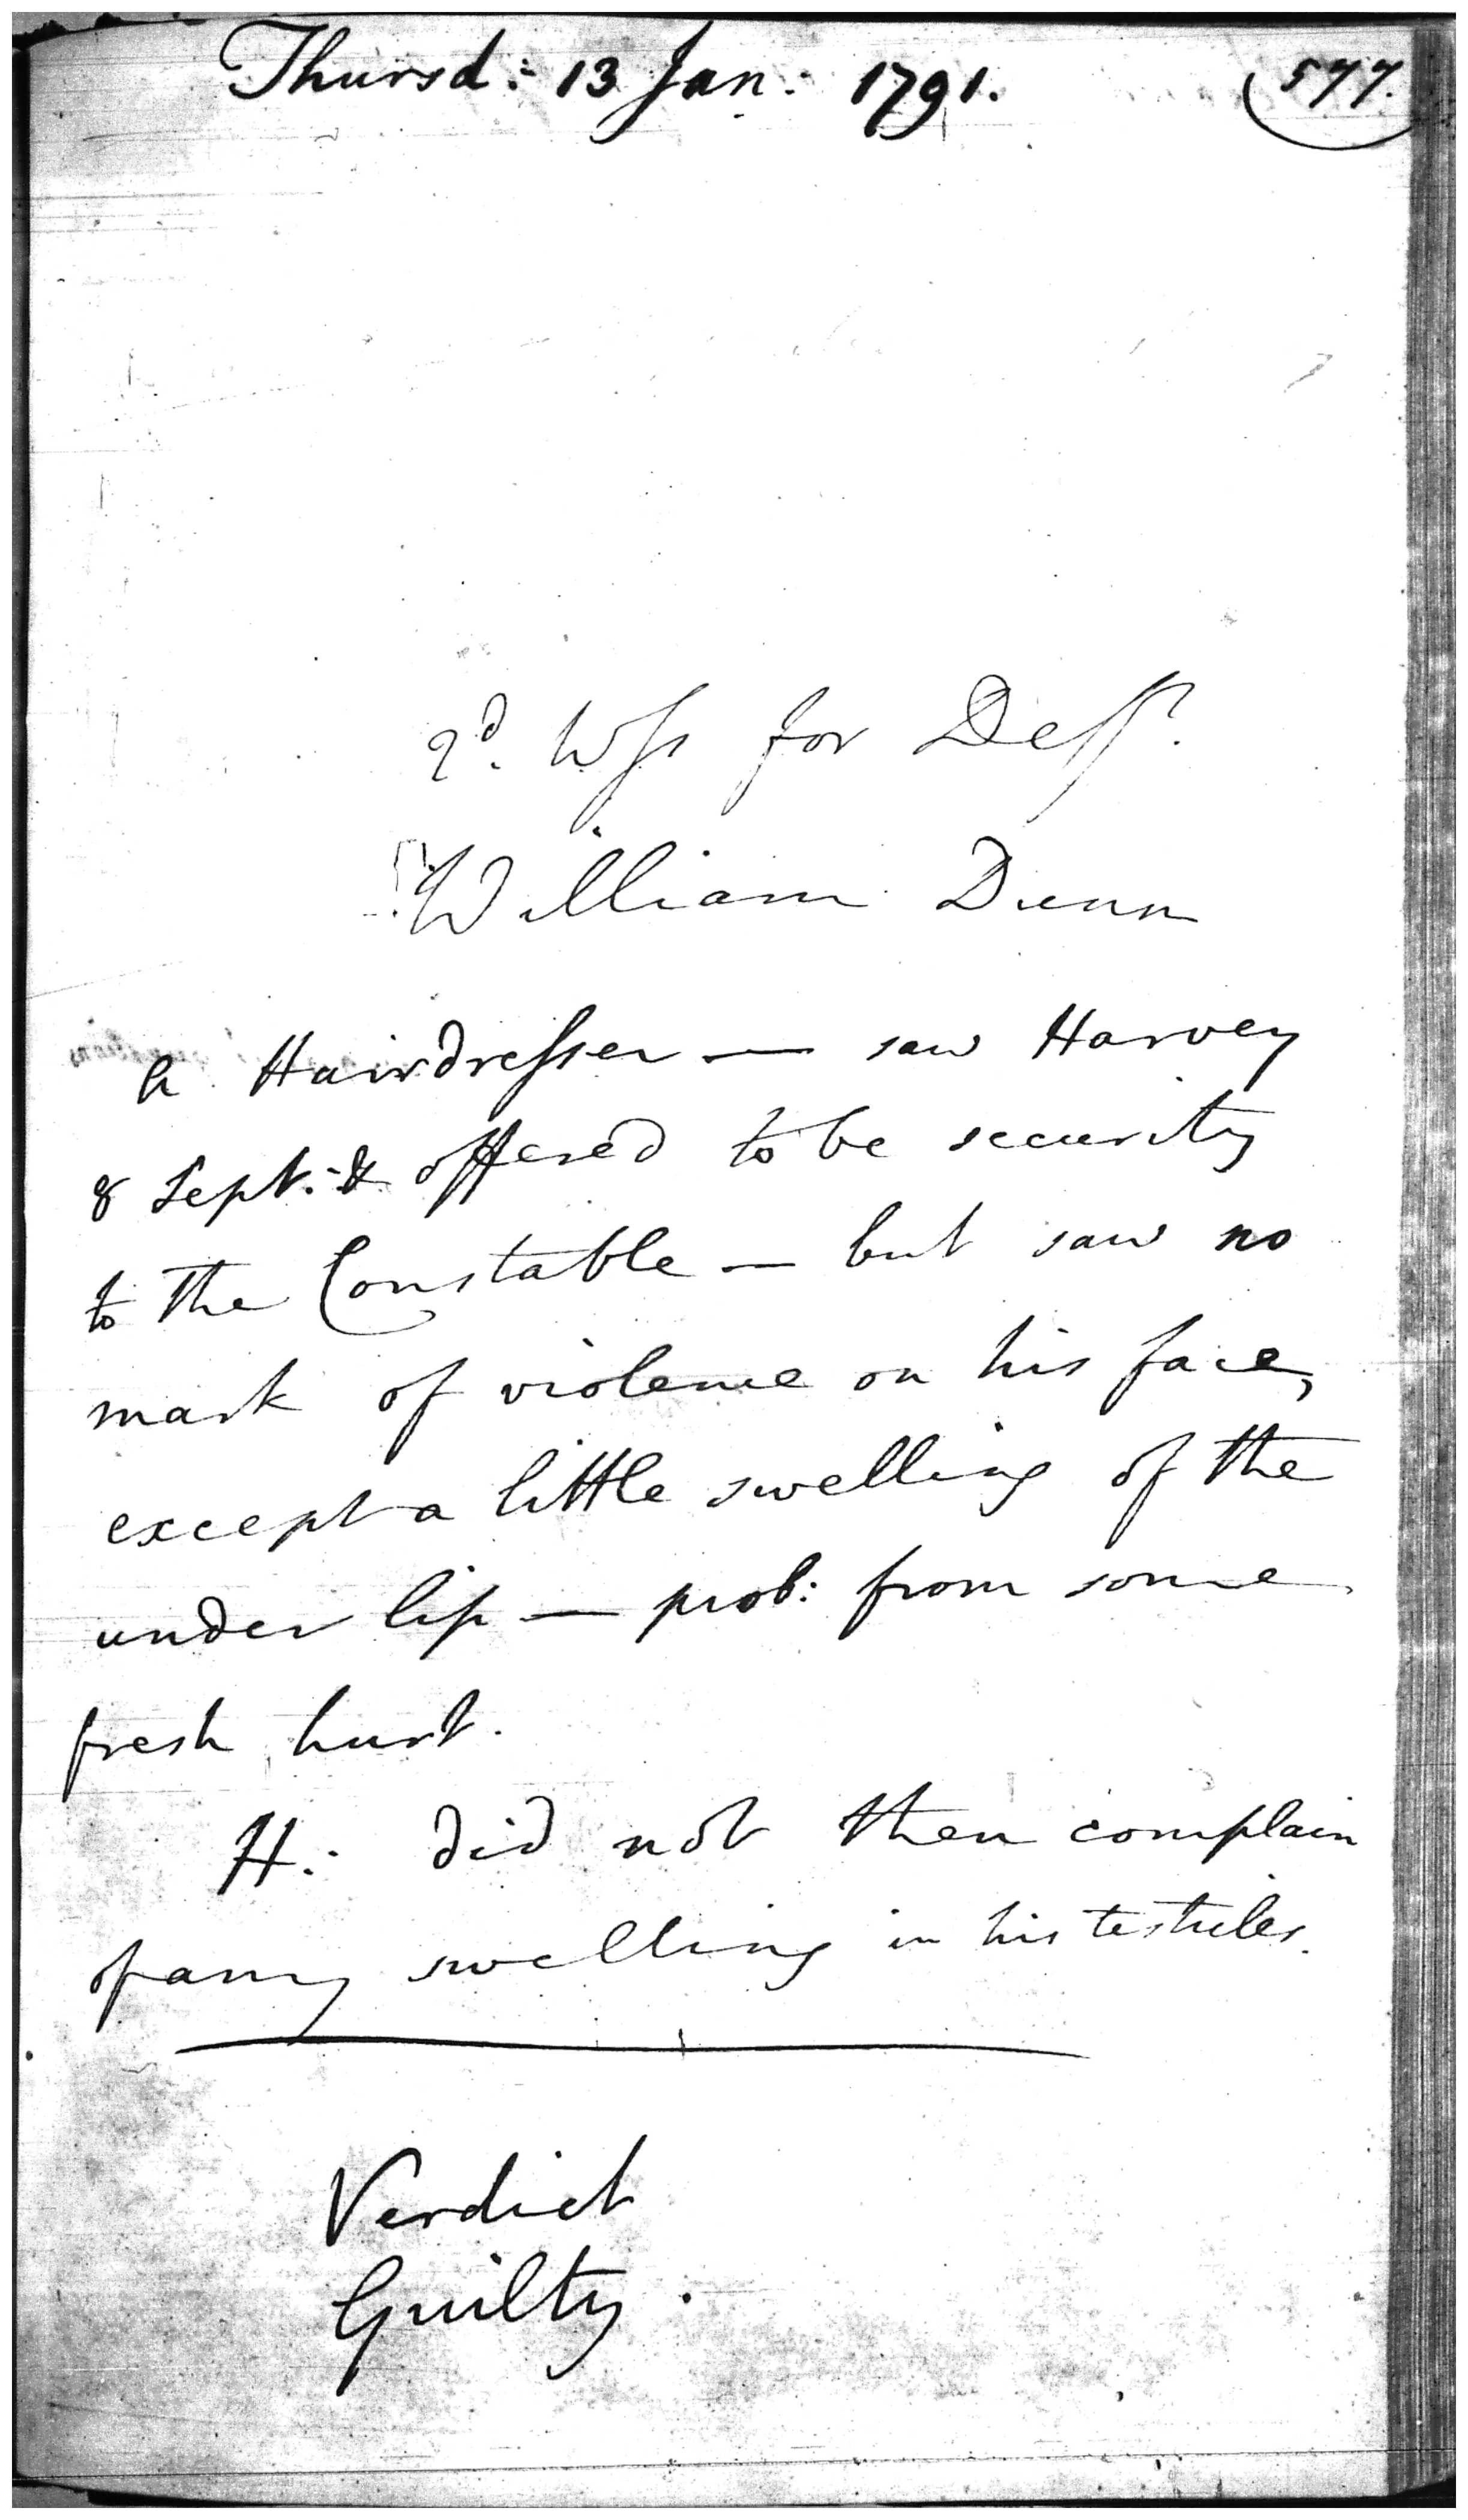 Thursd: 13 Jan: 1791.
577.
2d. Wss for Deft.
William Dunn
a Hairdresser — saw Harvey
8 Sept: & offered to be security
to the Constable — but saw no
mark of violence on his face,
except a little swelling of the
under lip — prob: from some
fresh hurt.
H: did not then complain
of any swelling in his testicles.
Verdict
Guilty.